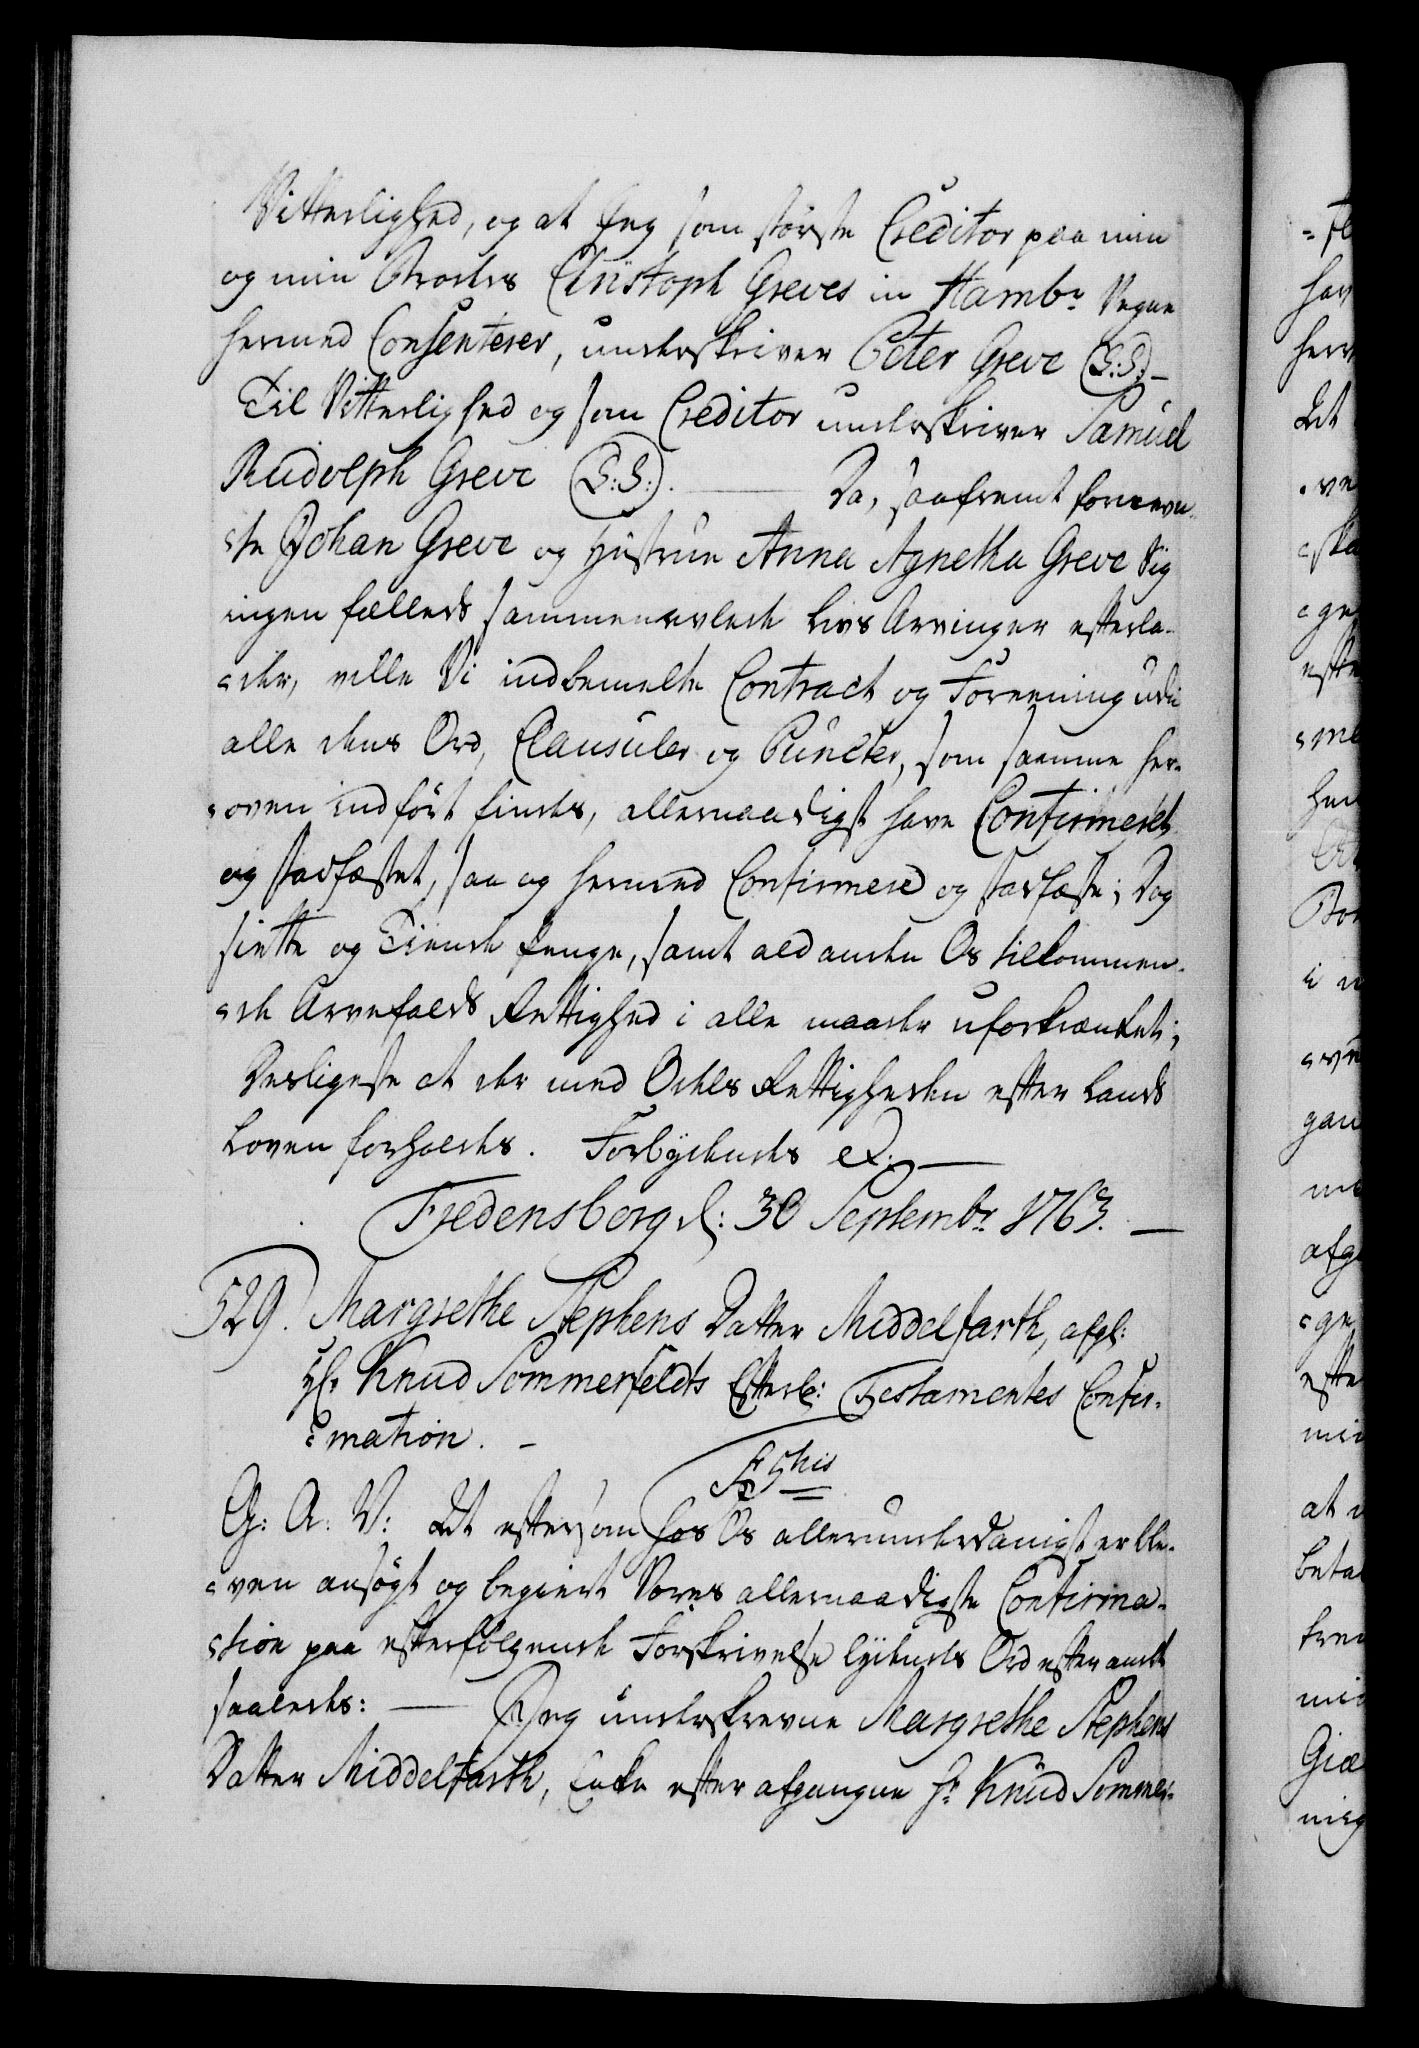 Vitterlighed, og at Jeg som störste Creditor paa min
og min Broders Christoph Greves in Hambr Vegne
hermed Consenterer, underskriver Peter Greve (L:S:) —
Til Vitterlighed og som Creditor underskriver Samúel
Rudolph Greve (L:S:). — Da, saafremt fornevn-
=te Johan Greve og Hústrue Anna Agnetha Greve Sig
ingen fælleds sammenavlede Livs Arvinger efterla-
=der, ville Vi indbemelte Contract og Foreening udi
alle dens Ord, Clausuler og Púncter, som samme her-
=oven indfört findes, allernaadigst have Confirmeret
og stadfæstet, saa og hermed Confirmere og stadfæste; Dog
siette og Tiende Penge, samt ald anden Os tilkommen-
=de Arvefalds Rettighed i alle maader uforkrænket;
Desligeste at der med Odels Rettigheden efter Lands
Loven forholdes. Forbydendes &. —
Fredensborg d: 30 Septembr 1763. —
529. Margrethe Stephens Datter Middelfarth, afgl:
Hr Knud Sommerfeldts Efterl: Testamentes Confir-
=mation. —
G: A: V: At eftersom hos Os allerunderdanigst er ble-
=ven ansögt og begiert Vores allernaadigste Confirma-
=tion paa efterfölgende Forskrivelse lydendes Ord efter andet
saaledes: — Jeg underskrevne Margrethe Stephens
Datter Middelfarth, Encke efter afgangne Hr Knúd Sommer-